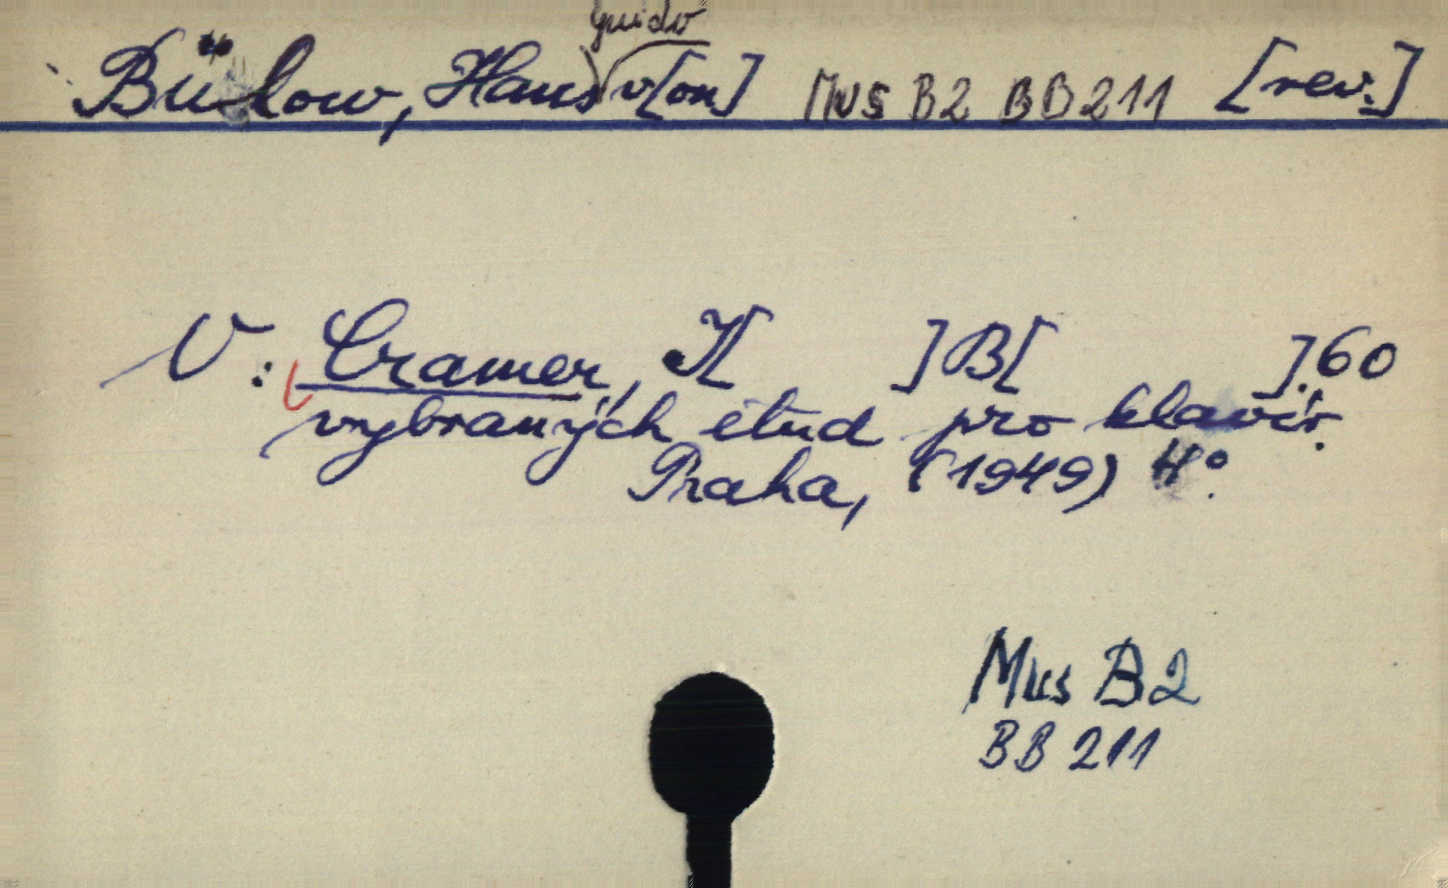 Guido
Bülow, Hans v[on] Mus B2 BB211 [rev.]
V: Cramer, J[ ]B[ ]. 60
vybraných etud pro klavír.
Praha, (1949) 4°.
Mus B2
BB 211